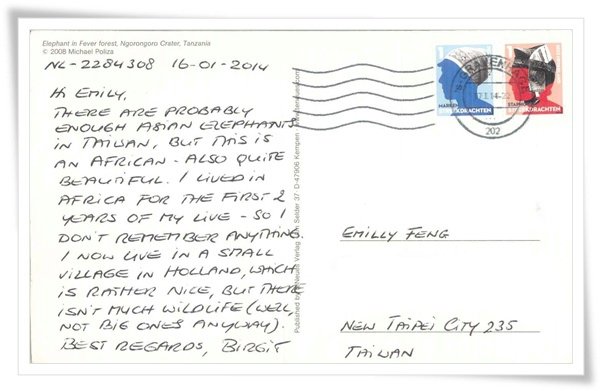 Elephant in Fever forest, Ngorongoro Crater, Tanzania
© 2008 Michael Poliza
NL-2284308 16-01-2014
HI EMILY,
THERE ARE PROBABLY
ENOUGH ASIAN ELEPHANTS
IN TAIWAN, BUT THIS IS
AN AFRICAN - ALSO QUITE
BEAUTIFUL. I LIVED IN
AFRICA FOR THE FIRST 2
YEARS OF MY LIVE - SO I
DON'T REMEMBER ANYTHING.
I NOW LIVE IN A SMALL
VILLAGE IN HOLLAND, WHICH
IS RATHER NICE, BUT THERE
ISN'T MUCH WILDLIFE (WELL,
NOT BIG ONES ANYWAY).
BEST REGARDS, BIRGIT
Published by teNeues Verlag Am Selder 37 D-47906 Kempen
1
MARKEN
KDRACHTEN
1
STAPH
KDRACHTEN
202
EMILLY FENG
NEW TAIPEI CITY 235
TAIWAN